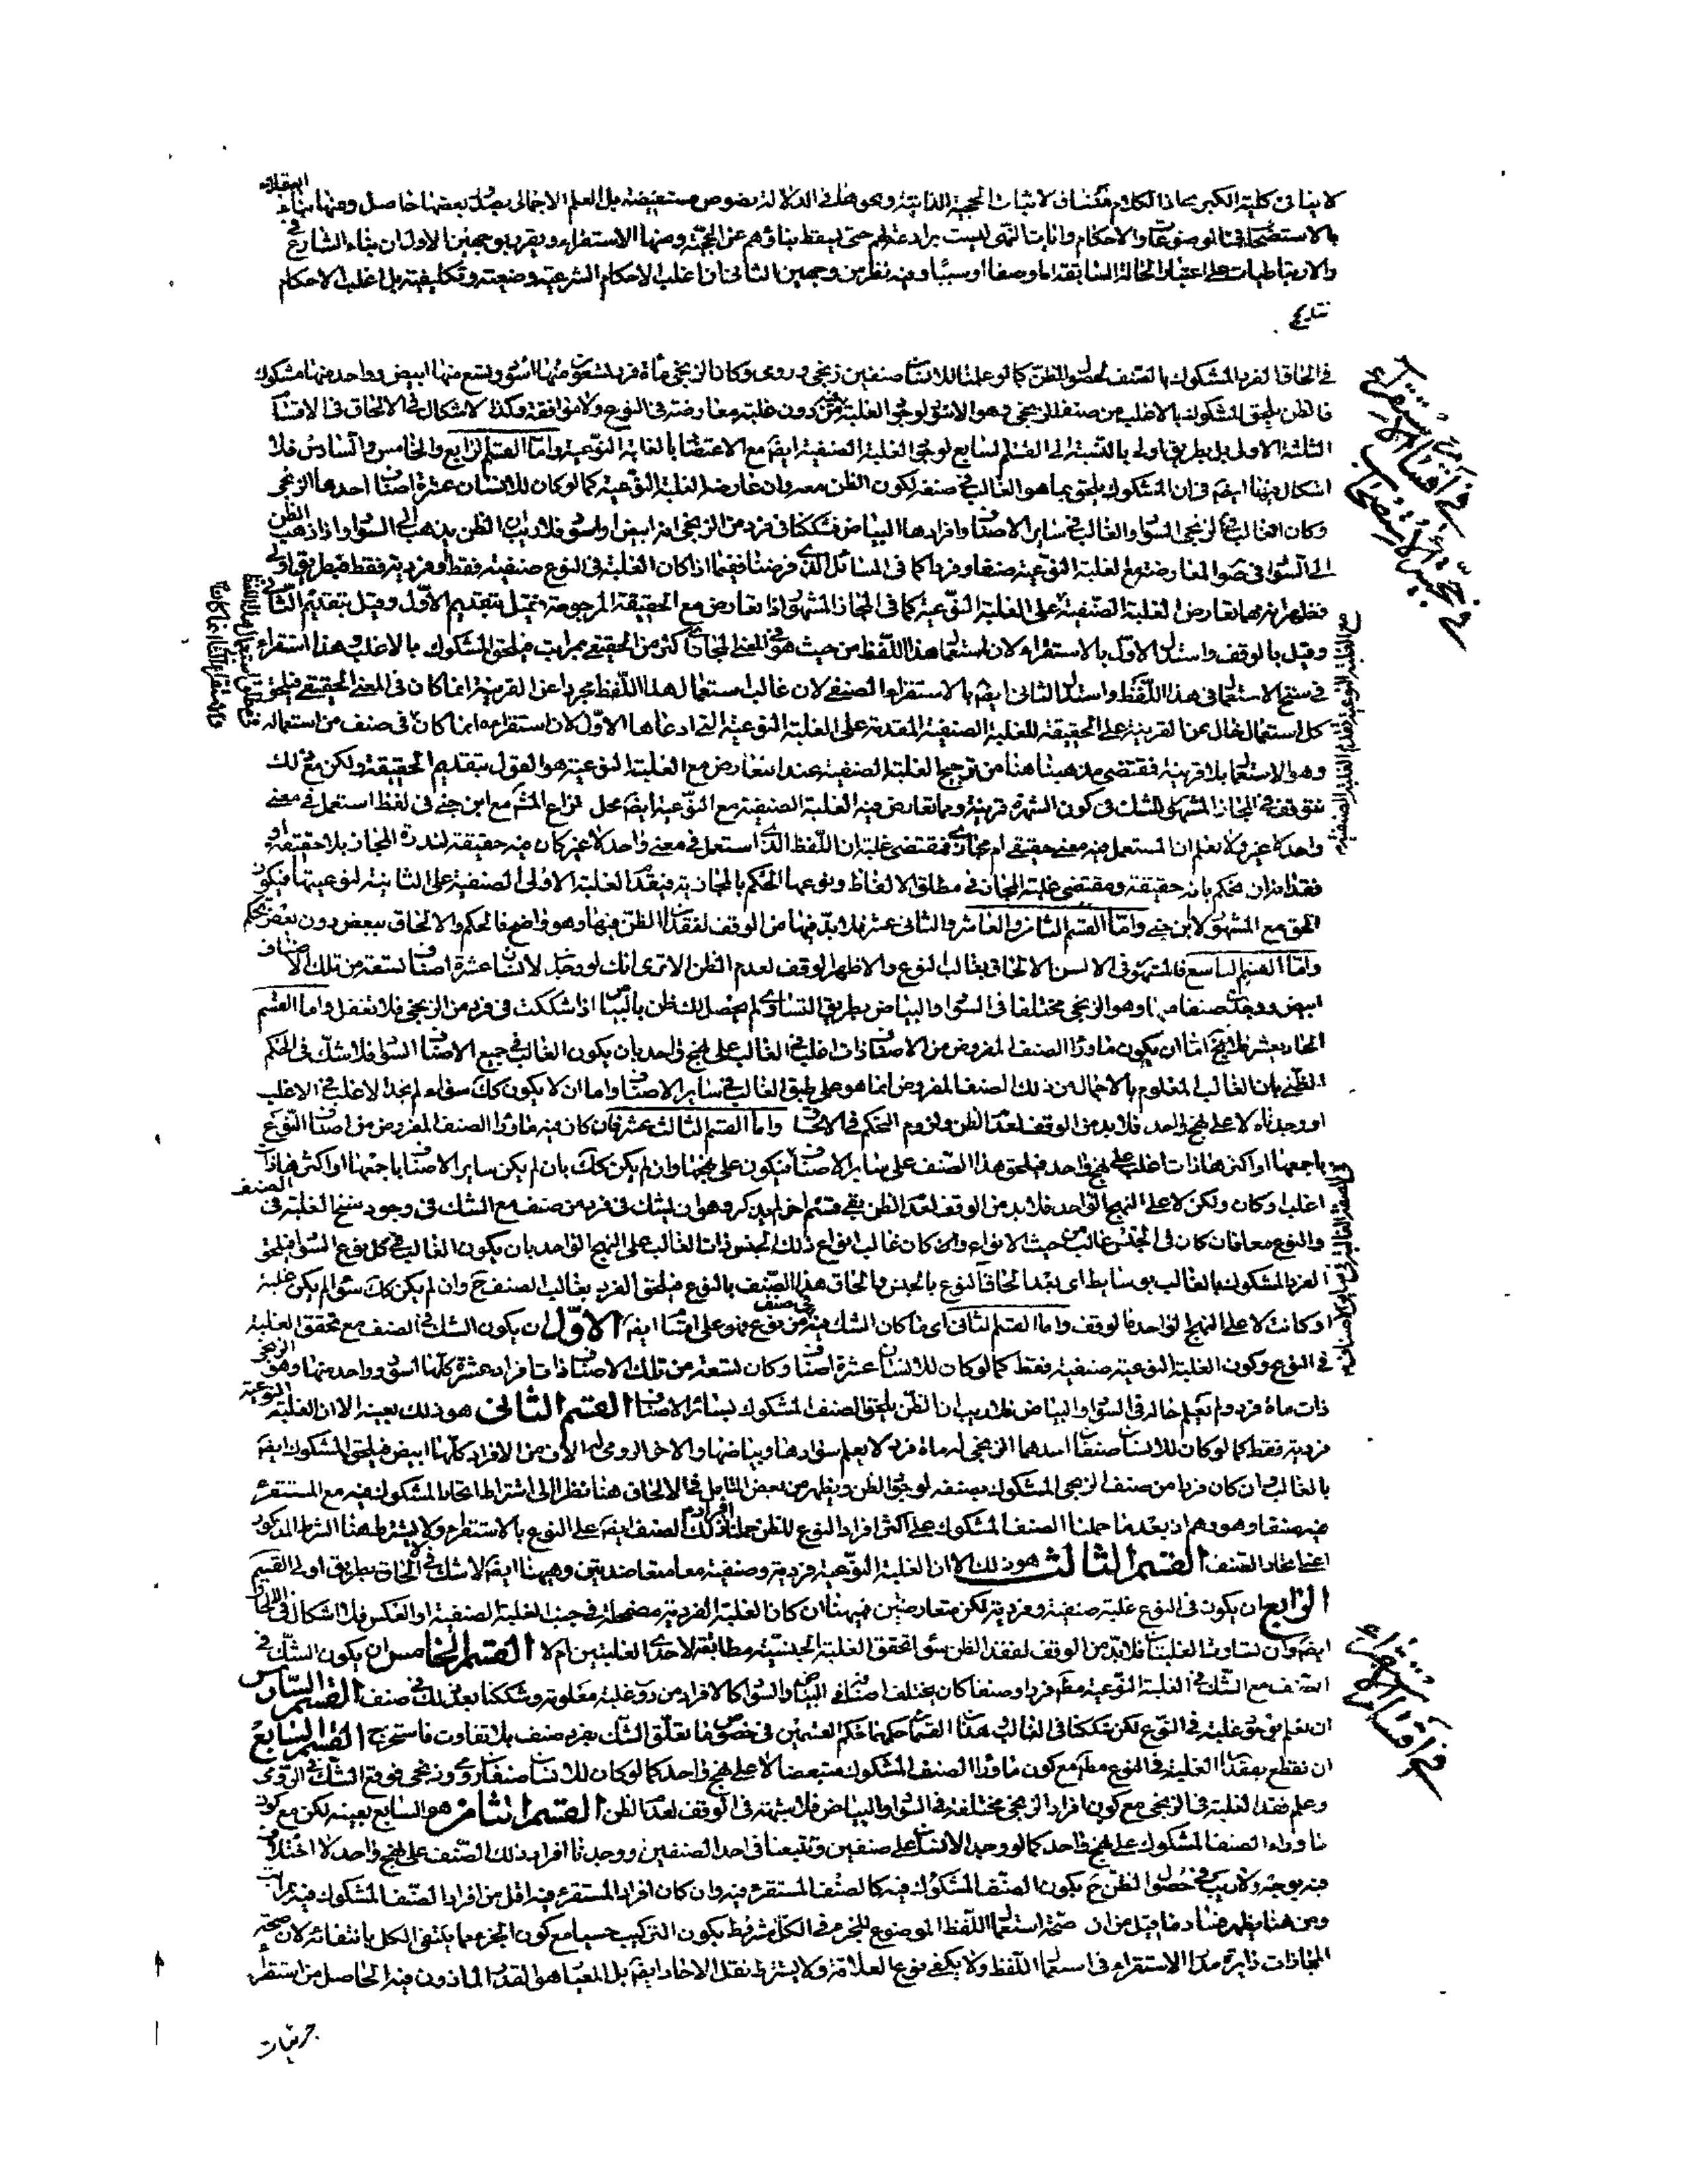 لا ينافي كلية الكبرى هذا الكلام في الاستصحاب
بالاستصحاب في الموضوعات والاحكام وايات النهي ليست برادعة لهم حتى يسقط بناؤهم عن الحجية ومنها الاستقراء ويقرر بوجهين الاول ان بناء الشارع في
على اعتبار الحالة السابقة اما وصفا او سببا وفيه نظر من وجهين الثاني ان اغلب الاحكام الشرعية وضعية وتكليفية بل اغلب الاحكام
في الحاق الفرد المشكوك بالصنف لحصول الظن كما لو علمنا للانسان صنفين زنجي ورومي وكان الزنجي مأة فرد تسعون منها اسود وتسع منها ابيض وواحد منها مشكوك
فالظن يلحق المشكوك بالاغلب من صنف الزنجي وهو الاسود لوجود الغلبة دون غلبة معارضة في النوع ولا موافقة وكذا لا اشكال في الالحاق في الاقسام
الثلثة الاولى بل بطريق اولى بالنسبة الى القسم السابع لوجود الغلبة الصنفية ايضا مع الاعتضاد بالغلبة النوعية واما القسم الرابع والخامس والسادس فلا
اشكال هنا ايضا في ان المشكوك يلحق بما هو الغالب في صنفه لكون الظن معه وان عارضه الغلبة النوعية كما لو كان للانسان عشرة اصناف احدها الزنجي
وكان الغالب في الزنجي السواد والغالب في ساير الاصناف وافرادها البياض فشككنا في فرد من الزنجي انه ابيض او اسود فلا ريب ان الظن يذهب الى السواد واذا ذهب الظن
الى السواد في صورة المعارضة مع الغلبة النوعية صنفا وفردا كما في المسائل الذي فرضنا ففيما اذا كان الغلبة في النوع صنفية فقط او فردية فقط فبطريق اولى
فظهر انه مهما تعارض الغلبة الصنفية على الغلبة النوعية كما في المجاز المشهور اذا تعارض مع الحقيقة المرجوحة قيل بتقديم الاول وقيل بتقديم الثاني
وقيل بالوقف واستدل الاول بالاستقراء لان استعمال هذا اللفظ من حيث هو في المعنى المجازي اكثر من الحقيقي بمراتب فيلحق المشكوك بالاغلب وهذا استقراء
في سنخ الاستعمال في هذا اللفظ واستدل الثاني ايضا بالاستقراء الصنفي لان غالب استعمال هذا اللفظ مجردا عن القرينة انما كان في المعنى الحقيقي فيلحق
كل استعمال خال عن القرينة على الحقيقة للغلبة الصنفية المقدمة على الغلبة النوعية التي ادعاها الاول لان استقراءه انما كان في صنف من استعماله
وهو الاستعمال بلا قرينة فمقتضى مذهبنا هنا من ترجيح الغلبة الصنفية عند التعارض مع الغلبة النوعية هو القول بتقديم الحقيقة ولكن مع ذلك
نتوقف في المجاز المشهور للشك في كون الشهرة قرينة ومما تعارض فيه الغلبة الصنفية مع النوعية ايضا محل نزاع المشهور مع ابن جني في لفظ استعمل في معنى
واحد لا غير ولا نعلم ان المستعمل فيه معنى حقيقي ام مجازي فمقتضى غلبة ان اللفظ الذي استعمل في معنى واحد لا غير كان فيه حقيقة لندرة المجاز بلا حقيقة او
فقدانه ان يحكم بانه حقيقة ومقتضى غلبة المجاز في مطلق الالفاظ ونوعها الحكم بالمجازية فيقدم الغلبة الاولى الصنفية على الثانية لنوعيتها فيكون
الحق مع المشهور لا ابن جني واما القسم الثامن والعاشر والثاني عشر فلا بد فيها من الوقف لفقدان الظن فيها وهو واضح فالحكم والالحاق ببعض دون بعض تحكم
واما القسم التاسع فالمشهور في الالسن الالحاق بغالب النوع والاظهر الوقف لعدم الظن الا ترى انك لو وجدت للانسان عشرة اصناف تسعة من تلك الاصناف
ابيض ووجدت صنفا منها وهو الزنجي مختلفا في السواد والبياض بطريق التساوي لم يحصل لك ظن بالبياض اذا شككت في فرد من الزنجي فلا تغفل واما القسم
الحاديعشر فلا يخ اما ان يكون ما وراء الصنف المفروض من الاصناف ذات اغلب في الغالب على نهج واحد بان يكون الغالب في جميع الاصناف السواد فلا شك في الحكم
الظني بان الغالب المعلوم بالاجمال من ذلك الصنف المفروض انما هو على طبق الغالب في ساير الاصناف واما ان لا يكون كك سواء لم يجد لا اغلب في الاغلب
او وجدناه لا على نهج واحد فلا بد من الوقف لعدم الظن ولزوم التحكم في الالحاق واما القسم الثالث عشر فان كان فيه ما وراء الصنف المفروض من اصناف النوع
باجمعها او اكثرها ذات اغلب على نهج واحد فيلحق هذا الصنف على ساير الاصناف فيكون على نهجها وان لم يكن كك بان لم يكن ساير الاصناف باجمعها او اكثرها ذات
اغلب او كان ولكن لا على النهج الواحد فلا بد من الوقف لعدم الظن بقي قسم اخر لم يذكر وهو ان يشك في فرد من صنف مع الشك في وجود سنخ الغلبة في الصنف
والنوع معا فان كان في الجنس غالب من حيث الانواع وان كان غالب انواع ذلك الجنس ذات الغالب على النهج الواحد بان يكون الغالب في كل نوع السواد فيلحق
الفرد المشكوك بالغالب بوسايط اي بعد الحاق النوع بالجنس والحاق هذا الصنف بالنوع فيلحق الفرد بغالب الصنف ح وان لم يكن كك سواء لم يكن غلبة
او كانت لا على النهج الواحد فالوقف واما القسم الثاني اي ما كان الشك فيه في صنف من نوع فهو على اقسام ايضا الاول ان يكون الشك في الصنف مع تحقق الغلبة
في النوع وكون الغلبة النوعية صنفية فقط كما لو كان للانسان عشرة اصناف وكان تسعة من تلك الاصناف ذات افراد عشرة كلها اسود وواحد منها وهو الزنجي
ذات مأة فرد ولم نعلم حاله في السواد والبياض فلا ريب ان الظن يلحق الصنف المشكوك بسائر الاصناف القسم الثاني هو ذلك بعينه الا ان الغلبة النوعية
فردية فقط كما لو كان للانسان صنفان احدهما الزنجي له مأة فرد لا يعلم سوادها وبياضها والاخر الرومي له الاف من الافراد كلها ابيض فيلحق المشكوك ايضا
بالغالب ان كان فردا من صنف الزنجي المشكوك بصنفه لوجود الظن ويظهر من بعض التامل في الالحاق هنا نظرا الى اشتراط اتحاد المشكوك فيه مع المستقرء
فيه صنفا وهو وهم اذ بعد ما حملنا الصنف المشكوك على اكثر افراد النوع للظن حملنا افراد ذلك الصنف ايضا على النوع بالاستقراء ولا يشترط هنا الشرط المذكور
اعني اتحاد الصنف القسم الثالث هو ذلك الا ان الغلبة النوعية فردية وصنفية معا متعاضدتين وهيهنا ايضا لا شك في الالحاق بطريق اولى القسم
الرابع ان يكون في النوع غلبة صنفية وفردية لكن متعارضتين فهيهنا ان كان الغلبة الفردية مضمحلة في جنب الغلبة الصنفية او العكس فلا اشكال في الالحاق
ايضا وان تساوت الغلبتان فلا بد من الوقف لفقد الظن سواء تحقق الغلبة الجنسية مطابقة لاحدى الغلبتين ام لا القسم الخامس ان يكون الشك في
الصنف مع الشك في الغلبة النوعية مط فردا وصنفا كان يختلف اصنافه في البياض والسواد كالافراد من دون غلبة معلومة وشككنا بعد ذلك في صنف القسم السادس
ان نعلم بوجود غلبة في النوع لكن شككنا في الغالب هذان القسمان حكمهما حكم القسمين في خصوص ما تعلق الشك بفرد صنف بلا تفاوت فاستخرج القسم السابع
ان نقطع بفقد الغلبة في النوع مط مع كون ما وراء الصنف المشكوك متبعضا لا على نهج واحد كما لو كان للانسان صنفان رومي وزنجي فوقع الشك في الرومي
وعلم فقد الغلبة في الزنجي مع كون افراد الزنجي مختلفة في السواد والبياض فلا شبهة في الوقف لعدم الظن القسم الثامن هو السابع بعينه لكن مع كون
ما وراء الصنف المشكوك على نهج واحد كما لو وجد الانسان على صنفين وتتبعنا في احد الصنفين ووجدنا افراد ذلك الصنف على نهج واحد لا اختلاف
فيه بوجه ولا ريب في حصول الظن ح بكون الصنف المشكوك فيه كالصنف المستقرء فيه وان كان افراد المستقرء فيه اقل من افراد الصنف المشكوك فيه بمراتب
ومن هنا يظهر فساد ما قيل من ان صحة استعمال اللفظ الموضوع للجزء في الكل مشروط بكون التركيب حسيا مع كون الجزء مما ينتفي الكل بانتفائه لان صحة
المجازات دائرة مدار الاستقراء في استعمال اللفظ ولا يكفي نوع العلاقة ولا يشترط نقل الاحاد ايضا بل المعيار هو القدر الماذون فيه الحاصل من استقراء
جزئيات
في اقسام الاستقراء